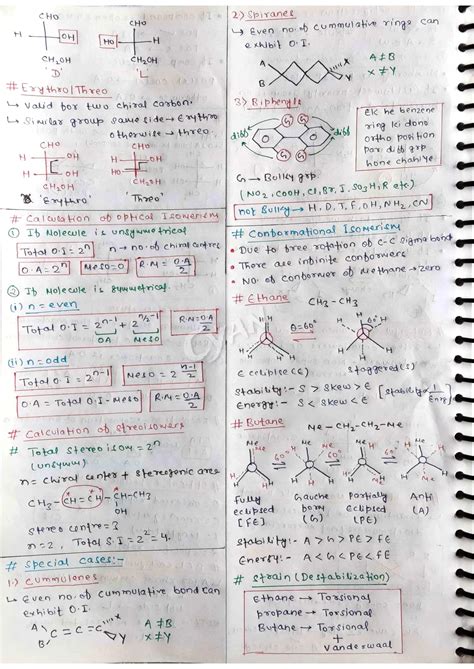 CHO
CHO
H
OH
HO
H
CH2OH
CH2OH
'D'
'L'
# Erythro/Threo
↳ Valid for two chiral carbon.
↳ Similar group same side → Erythro
otherwise → threo
CHO
CHO
OH
OH
OH
HO
CH2OH
CH2OH
'Erythro'
'Threo'
# Calculation of optical Isomerism
① If Molecule is unsymmetrical
Total O.I = 2^n
n → no. of chiral centres
O.A = 2^n
Meso = 0
R.M = O.A/2
② If Molecule is symmetrical
(i) n = even
Total O.I = 2^(n-1) + 2^(n/2-1)
R.M = O.A/2
OA
Meso
(ii) n = odd
Total O.I = 2^(n-1)
Meso = 2^((n-1)/2)
O.A = Total O.I - Meso
R.M = O.A/2
# Calculation of stereoisomers
# Total stereo isom = 2^n
(unsymm)
n = chiral center + stereogenic area
CH3-CH=CH-CH-CH3
OH
stereo centre = 3
n = 2, Total S.I = 2^2 = 4.
# Special Cases:-
1.) Cummulenes
↳ Even no. of cummulative bond can
exhibit O.I.
A
B
C = C = C
X
Y
A ≠ B
X ≠ Y
2) Spiranes
↳ Even no. of cummulative rings can
exhibit O.I.
A
B
X
Y
A ≠ B
X ≠ Y
3) Biphenyls
diff
G
G
G
G
diff
Ek he benzene
ring ki dono
ortho position
par diff grp
hone chahiye
G → Bulky grp.
(NO2, COOH, Cl, Br, I, SO3H, R etc)
not Bulky → H, D, T, F, OH, NH2, CN
# Conformational Isomerism
• Due to free rotation of C-C sigma bond
• There are infinite conformers
• No. of conformer of Methane → zero
# Ethane
CH3-CH3
θ=60°
60°
Eclipse (E)
Staggered (S)
Stability:- S > Skew > E
Energy:- S < Skew < E
# Butane
Me-CH2-CH2-Me
Fully
eclipsed
[FE]
Gauche
form
(G)
Partially
Eclipsed
(PE)
Anti
(A)
Stability:- A > G > PE > FE
Energy:- A < G < PE < FE
# Strain (Destabilization)
Ethane → Torsional
propane → Torsional
Butane → Torsional
+
Vanderwaal